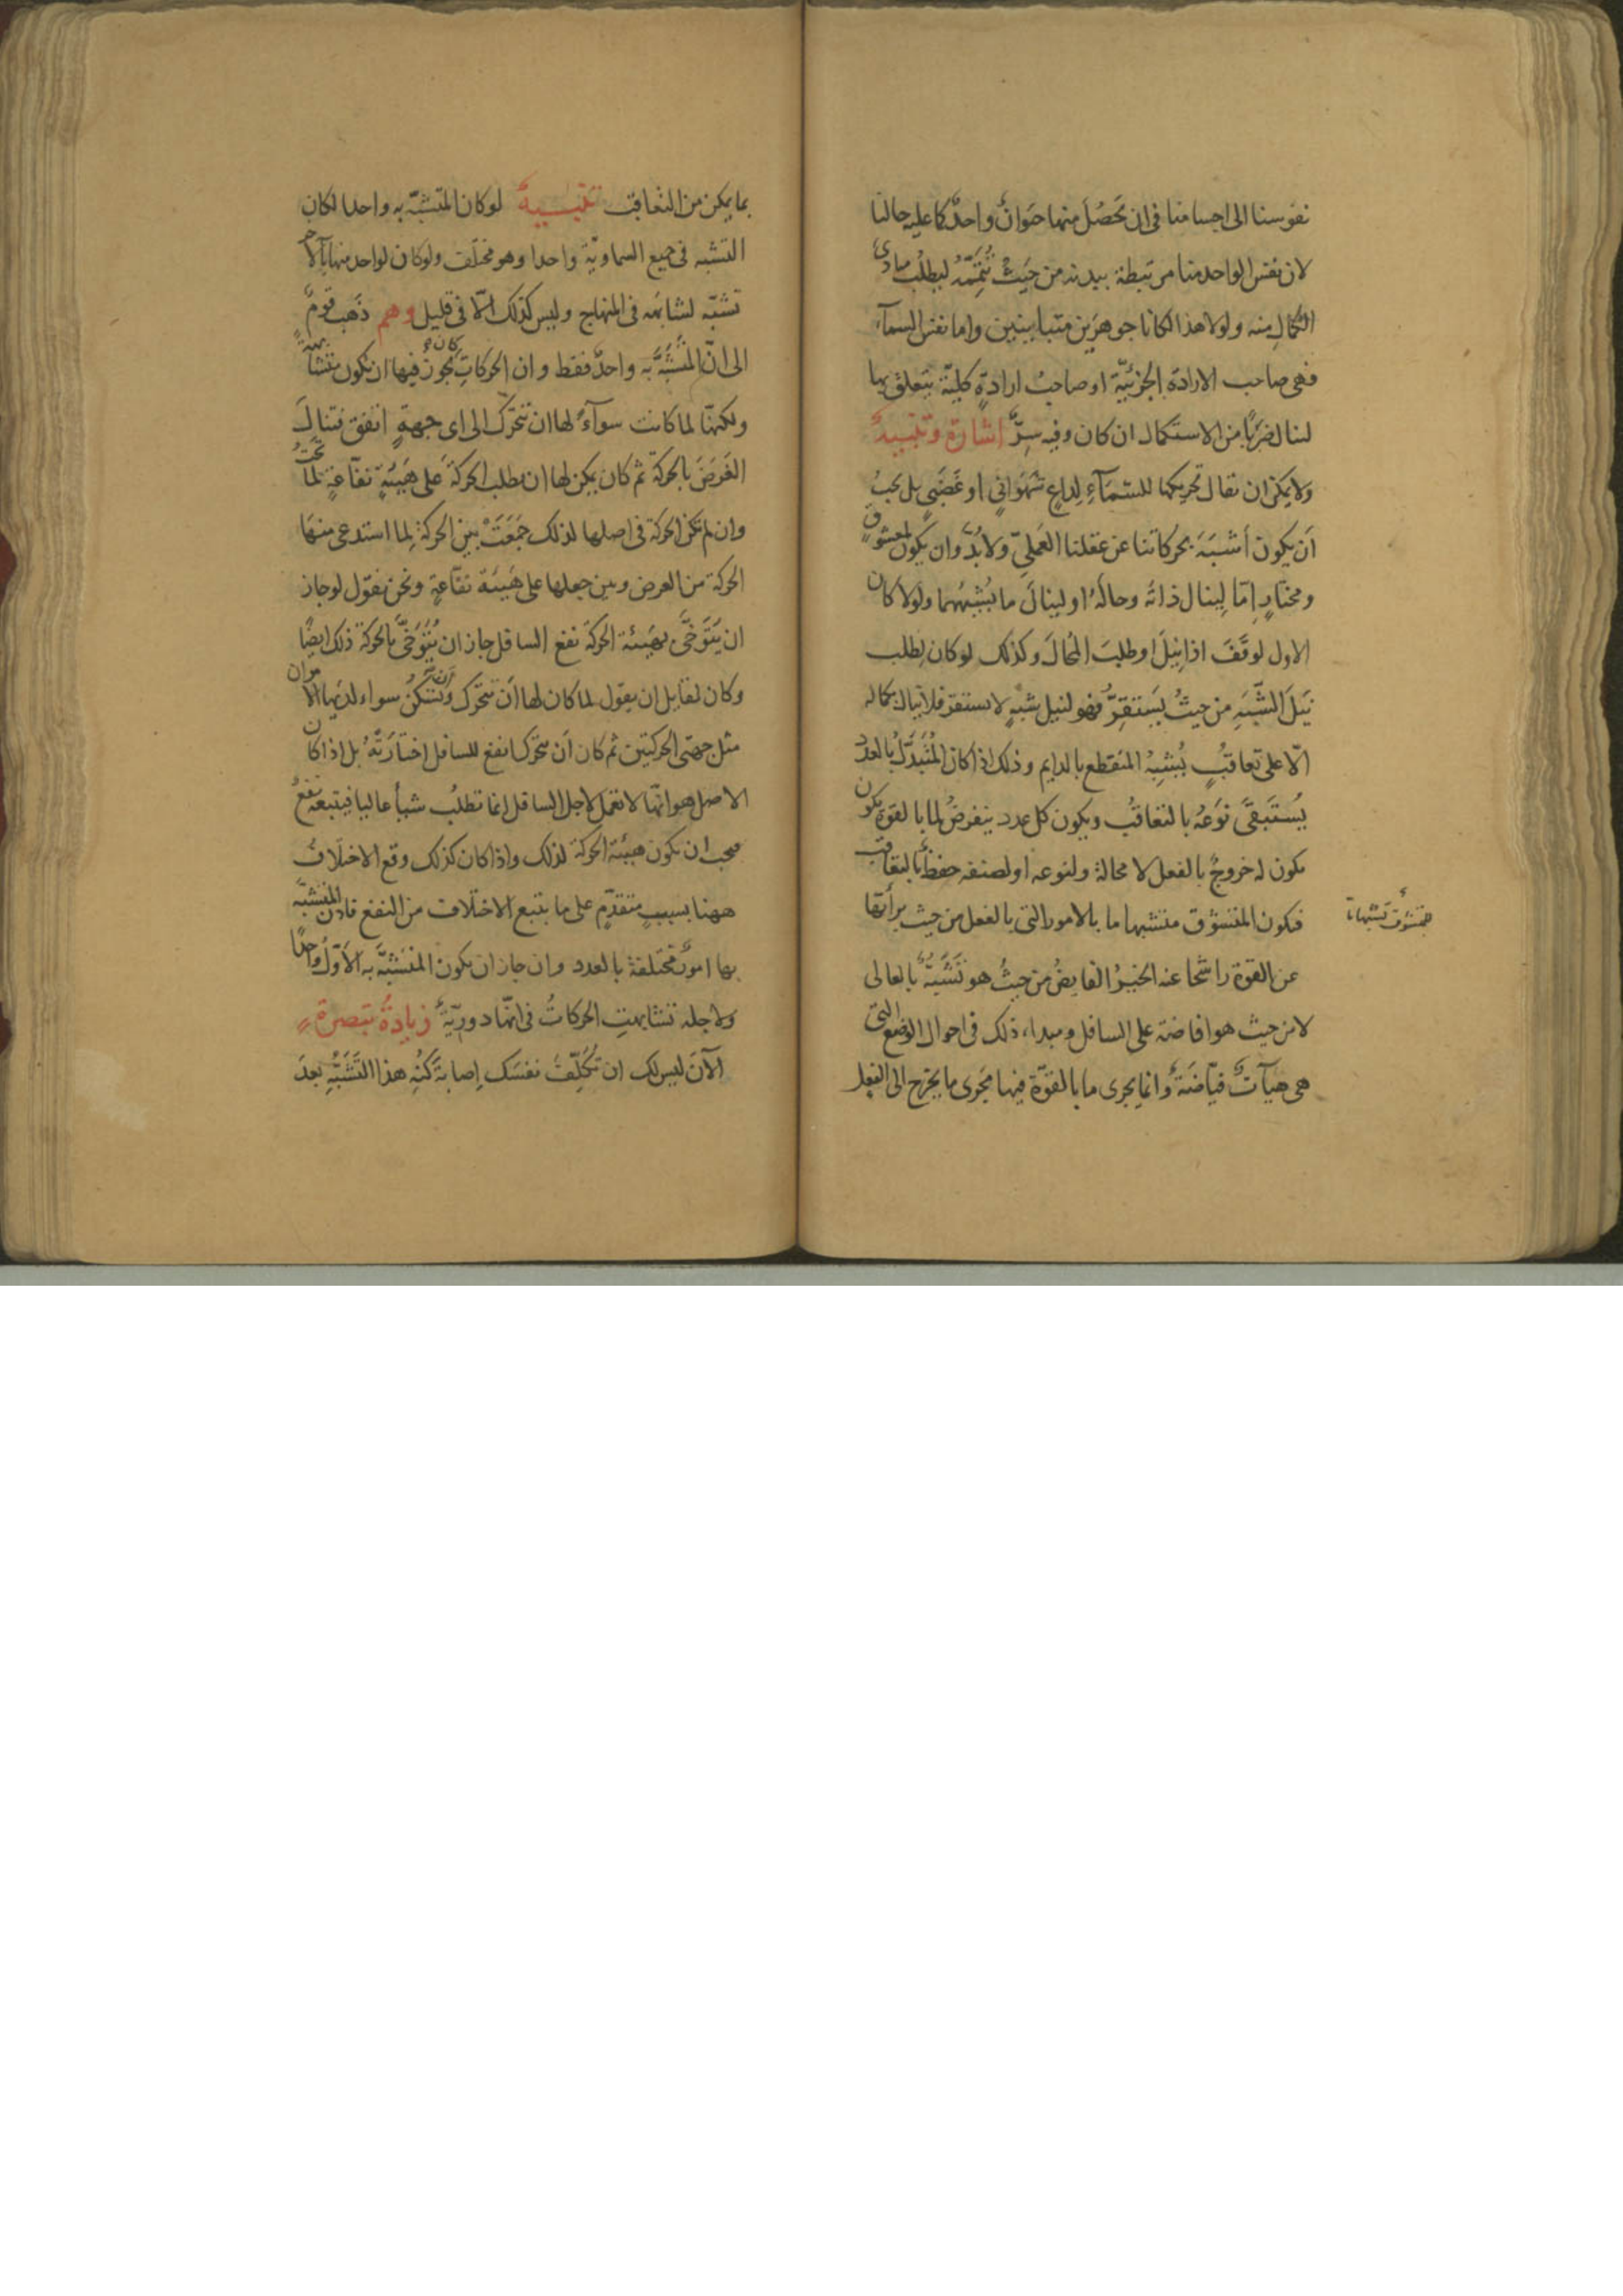 نفوسنا الى اجسامنا فى ان يَحصُلَ منها حيَوانٌ واحدٌ كما عليه حالنا
لان نفس الواحد منا مرتبطة ببدنه من حيثُ تُتِمُّهُ ليطلُب مبادىَ
الكمالِ منه ولولا هذا لكانا جوهرَين متباينين واما نفس السمآء
فهى صاحب الارادة الجزئيّة او صاحبُ ارادةٍ كليّة يتعلق بها
لينال ضربًا من الاستكمال ان كان وفيه سِرٌّ اشارة وتنبيه
ولا يمكن ان تقال تحريكها للسّمآءِ لِداعٍ شهوانىٍ او غضبىٍ بل يجبُ
اَن يكون اَشبَهَ بحركاتنا عن عقلنا العَمَلىِّ ولا بُدَّ وان يكون لمعشوقٍ
ومختارٍ اِمّا لِينال ذاتَه وحالَهُ او لينالَ ما يُشبِهُهما ولو كان
الاول لوقَّفَ اذا نِيلَ او طلبَ المُحالَ وكذلك لو كان لِطلب
نَيلَ الشَّبَهِ من حيثُ يَستقِرُّ فهو لنيل شبهٍ لا يستقر فلا ينال بكماله
الّا على تعاقبٍ يُشبِهُ المنقطع بالدايم وذلك اذا كان المُتبدّلُ بالعدد
يُستَبقَى نَوعُه بالتعاقُب ويكون كل عدد ينفرضُ لما بالقوة يكون
يكون له خروجٌ بالفعل لا محالة ولنوعه او لصنفه حفظٌ بالتعاقب
فيكون المتشوّق متشبها ما بالامور التى بالفعل من حيث برأتها
للمتشوق تشبها ما
عن القوة راشحا عنه الخيرُ الفايضُ من حيثُ هو تَشَبُّهٌ بالعالى
لا من حيث هو افاضة على السافل ومبداء ذلك فى احوال الوضع التى
هى هيآتٌ فيّاضَةٌ وانما يجرى ما بالقوّة فيها مَجرى ما يخرج الى الفعل
بما يمكن من التعاقب تنبيه لو كان المتشبّه به واحدا لكان
التشبه فى جميع السماويّة واحدا وهو مختلف ولو كان لواحد منها بالآخر
تشبّه لشابَهَه فى المنهاج وليس كذلك الّا فى قليل وهم ذَهب قومٌ
الى انّ المُتشبَّه به واحدٌ فقط وان الحركاتِ كان يجوز فيها ان تكون متشابهةً
ولكنّها لما كانت سوآءً لها ان تتحرّك الى اى جهةٍ اتفق فتنالُ
الغَرَضَ بالحركة ثم كان يمكن لها ان تطلب الحركة على هَيئةٍ نفّاعةٍ لما تحتُ
وان لم تكن الحركة فى اصلها لذلك جَمَعَتْ بين الحركة لِما استدعى منها
الحركة من الغرض وبين جعلها على هَيئَة نفّاعةٍ ونحن نقول لو جاز
ان يَتَوَخَّى بهَيئة الحركة نفع السافل جاز ان يُتَوَخَّى بالحركة ذلك ايضًا
وكان لقايل ان يقول لما كان لها اَن تتحرّك واَن تسكنُ سواء لديها الامران
مثل جهتى الحركتين ثم كان اَن تتحرّك انفع للسافل اختارَتْهُ بل اذا كان
الاصل هو انّها لا تعمل لاجل السافل انما تطلُب شيأً عاليا فيتبعه نفعٌ
فيجب ان يكون هيئة الحركة لذلك واذا كان كذلك وقع الاختلافُ
ههنا بسببٍ متقدّمٍ على ما يتبع الاختلاف من النفع فاذن المتشبّه
بها امورٌ مختلفة بالعدد وان جاز ان يكون المتشبَّه به الاَوَّلُ واحدًا
ولاجله تشابهتِ الحركاتُ فى انّها دوريّةٌ زيادةُ تبصرة
الآنَ ليس لك ان تُكَلِّف نفسَك اِصابةَ كُنْهِ هذا التَّشبُّهِ بعدَ